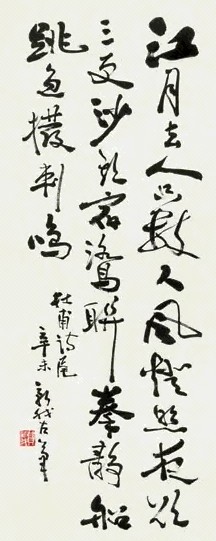 江月去人只數尺風燈照夜欲
三更沙頭宿鷺聯拳靜船
跳魚撥剌鳴
杜甫詩尾
辛未新我左筆